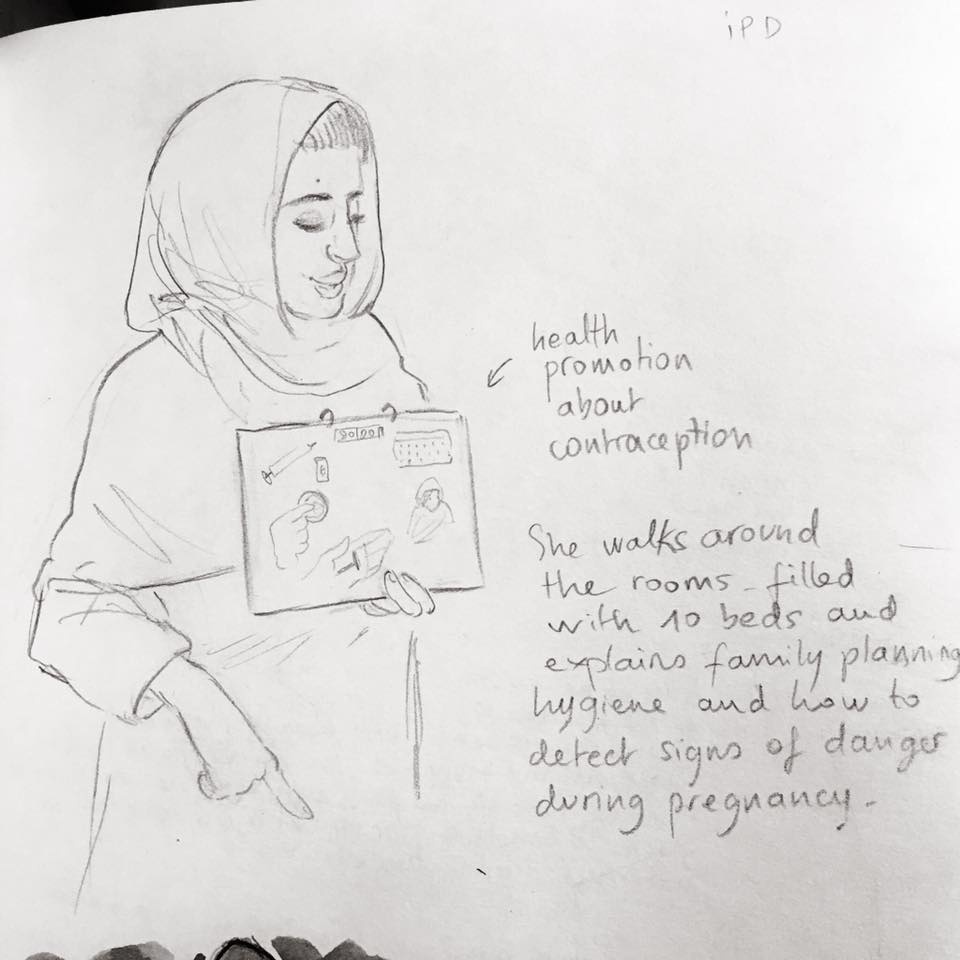 iPD
health
promotion
about
contraception
She walks around
the rooms - filled
with 10 beds and
explains family planning
hygiene and how to
detect signs of danger
during pregnancy -